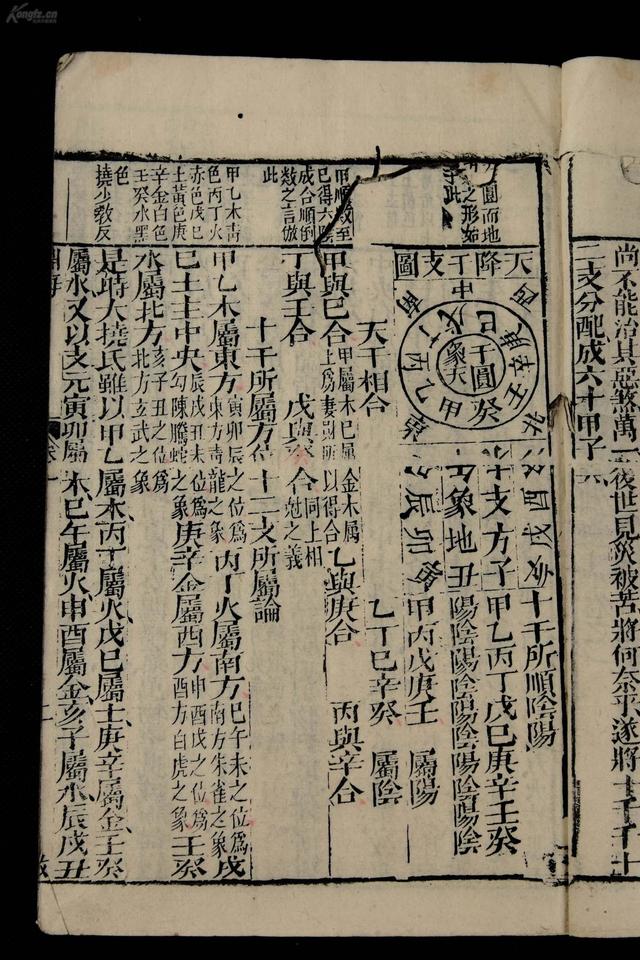 Kongfz.cn
尚不能治其惡煞萬一後世見災被苦將何奈乎遂將十干十
二支分配成六十甲子
圓而地
之形如
此
甲順數至
巳得六
成合順倒
數之言倣
此
甲乙木青
色丙丁火
赤色戊巳
土黃色庚
辛金白色
壬癸水黑
色
撓少敎反
天降干支圖
干圓象天
甲乙丙丁戊巳庚辛壬癸
十支方
象地
子丑寅卯辰
酉戌亥
十干所順陰陽
甲乙丙丁戊巳庚辛壬癸
陽陰陽陰陽陰陽陰陽陰
甲丙戊庚壬 屬陽
乙丁巳辛癸 屬陰
天干相合
甲與巳合 甲屬木巳屬土 金木屬 以得合 乙與庚合 丙與辛合
丁與壬合 戊與癸合 同上相尅之義
十干所屬方位 十二支所屬論
甲乙木屬東方 寅卯辰之位爲東方青龍之象 丙丁火屬南方 巳午未之位爲南方朱雀之象 戊
巳土主中央 辰戌丑未位爲勾陳螣蛇之象 庚辛金屬西方 申酉戌之位爲西方白虎之象 壬癸
水屬北方 亥子丑之位爲北方玄武之象
是時大撓氏雖以甲乙屬木丙丁屬火戊巳屬土庚辛屬金壬癸
屬水又以支元寅卯屬木巳午屬火申酉屬金亥子屬水辰戌丑
淵海 卷一 二